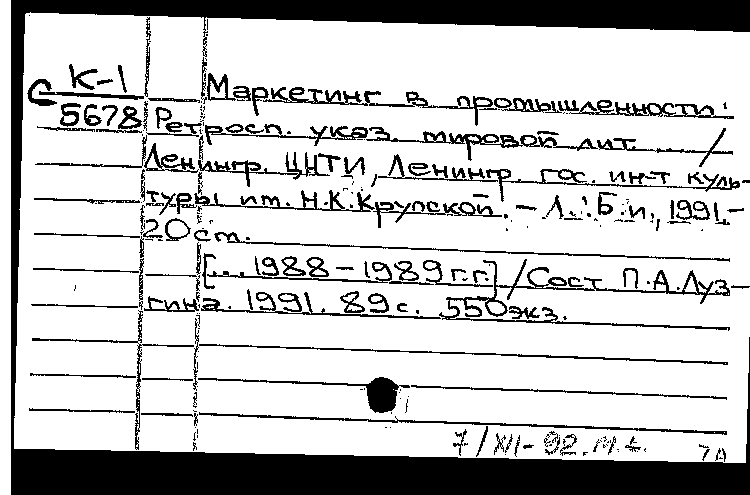 К-1 Маркетинг в промышленности:
С 5678 Ретросп. указ. мировой лит. ... /
Ленингр. ЦНТИ, Ленингр. гос. ин-т куль-
туры им. Н.К.Крупской. – Л.: Б.и., 1991.-
20 cm.
[... 1988 – 1989 г.г.] / Сост П.А.Луз-
гина. 1991. 89 с. 550 экз.
7/XII-92.